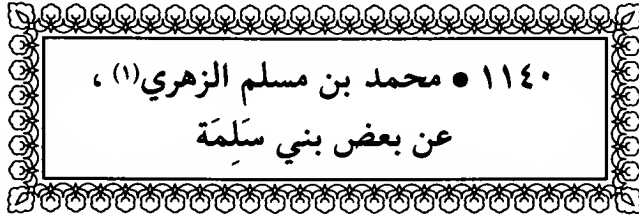 ١١٤٠ • محمد بن مسلم الزهري(١) ،
عن بعض بني سَلِمَة